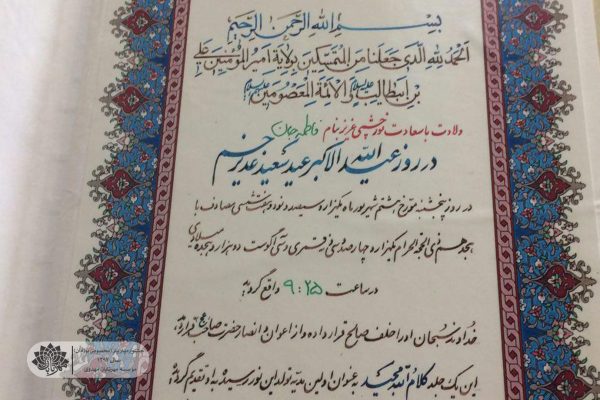 بسم الله الرحمن الرحیم
الحمد لله الذی جعلنا من المتمسکین بولایة امیر المؤمنین علی
بن ابیطالب علیه السلام و الائمة المعصومین علیهم السلام
ولادت با سعادت نورچشمی عزیزمان فاطمه جان
در روز عید الله الاکبر عید سعید غدیر خم
در روز پنجشنبه مورخ هشتم شهریور ماه یکهزار و سیصد و نود و هفت شمسی مصادف با
هجدهم ذی الحجة الحرام یکهزار و چهارصد و سی و نه قمری و سی آگوست دو هزار و هیجده میلادی
در ساعت ۹:۲۵ واقع گردید
خداوند سبحان او را خلف صالح قرار داده و از اعوان و انصار حضرت صاحب (عج) قرار دهد
این یک جلد کلام الله مجید به عنوان اولین هدیه تولد این نور رسیده به او تقدیم گردید
سال ۱۳۹۷
موسسه مهربانان مهدوی